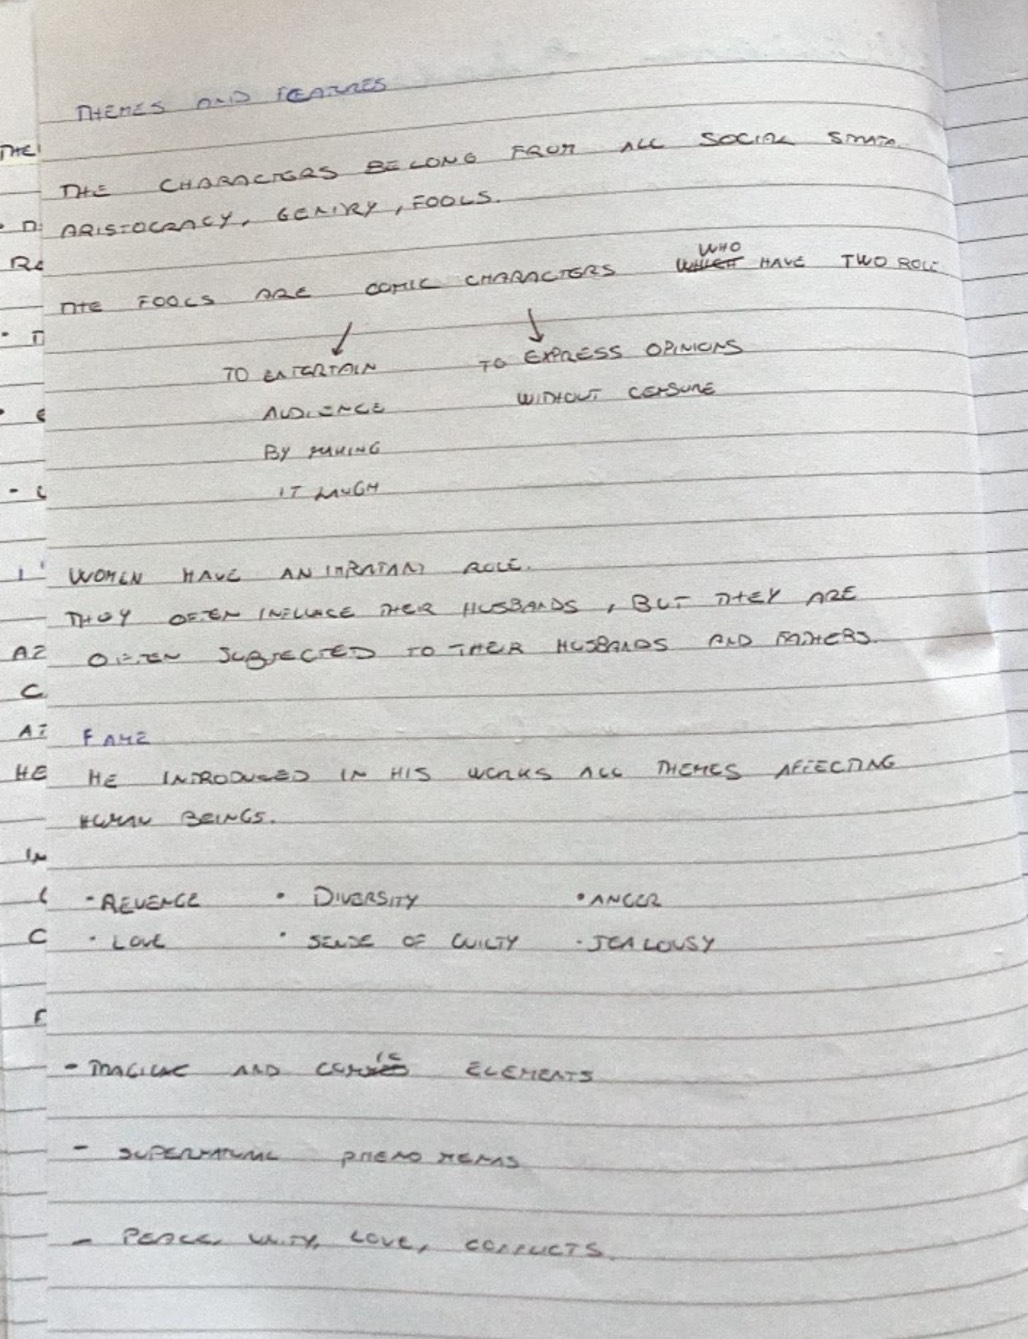 THEMES AND FEATURES
THE CHARACTERS BELONG FROM ALL SOCIAL STRATA
ARISTOCRACY, GENTRY, FOOLS.
THE FOOLS ARE COMIC CHARACTERS WHO HAVE TWO ROLE
TO ENTERTAIN TO EXPRESS OPINIONS
AUDIENCE WITHOUT CENSURE
BY MAKING
IT LAUGH
WOMEN HAVE AN ROLE.
THEY OFTEN INFLUACE THEIR HUSBANDS, BUT THEY ARE
OFTEN SUBJECTED TO THEIR HUSBANDS AND FATHERS.
FAME
HE INTRODUCED IN HIS WORKS ALL THEMES AFFECTING
HUMAN BEINGS.
• REVENGE • DIVERSITY • ANGER
• LOVE • SENSE OF GUILTY • JEALOUSY
- AND ELEMENTS
- SUPERNATURAL PHENOMENAS
- PEACE, UNITY, LOVE, CONFLICTS.